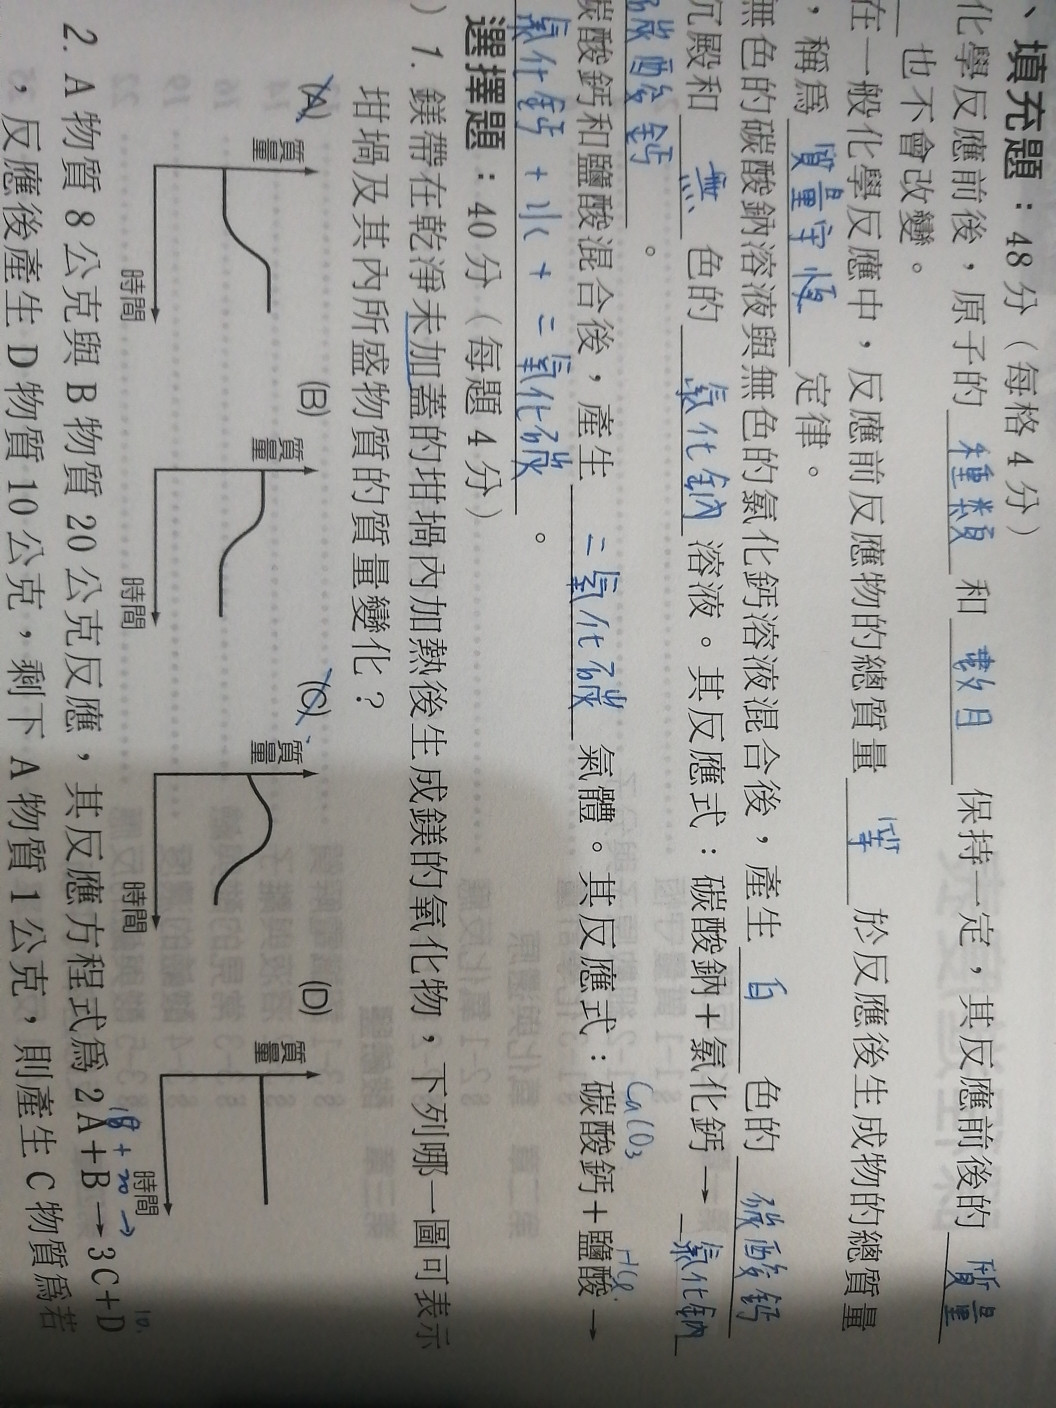 、填充題：48分（每格4分）
化學反應前後，原子的 種類 和 數目 保持一定，其反應前後的 質量
也不會改變。
在一般化學反應中，反應前反應物的總質量 等 於反應後生成物的總質量
，稱為 質量守恆 定律。
無色的碳酸鈉溶液與無色的氯化鈣溶液混合後，產生 白 色的 碳酸鈣
沉殿和 無 色的 氯化鈉 溶液。其反應式：碳酸鈉＋氯化鈣→ 氯化鈉
碳酸鈣 。
CaCO3 HCl
碳酸鈣和鹽酸混合後，產生 二氧化碳 氣體。其反應式：碳酸鈣＋鹽酸→
氯化鈣 + 水 + 二氧化碳 。
選擇題：40分（每題4分）
）1. 鎂帶在乾淨未加蓋的坩堝內加熱後生成鎂的氧化物，下列哪一圖可表示
坩堝及其內所盛物質的質量變化？
(A) (B) (C) (D)
質量 質量 質量 質量
時間 時間 時間 時間
2. A物質8公克與B物質20公克反應，其反應方程式為2A＋B→3C＋D
+ 20 → 10.
，反應後產生D物質10公克，剩下A物質1公克，則產生C物質為若